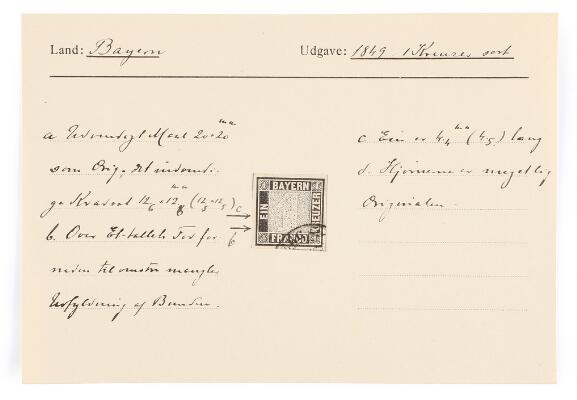 Land: Bayern
Udgave: 1849 1 Kreuzer sort
a Udvendigt Maal 20 × 20 mm
som Orig., det indvendi-
ge Kvadrat 12/6 × 12/8 mm (12/5 × 12/5)
b. Over Et-tallets Fod for
neden til venstre mangler
Udfyldning af Bunden.
c
b
BAYERN
EIN
KREUZER
FRANCO
c Ein er 4,4 mm (4,5) lang
d. Hjørnerne er meget lig
Originalen.